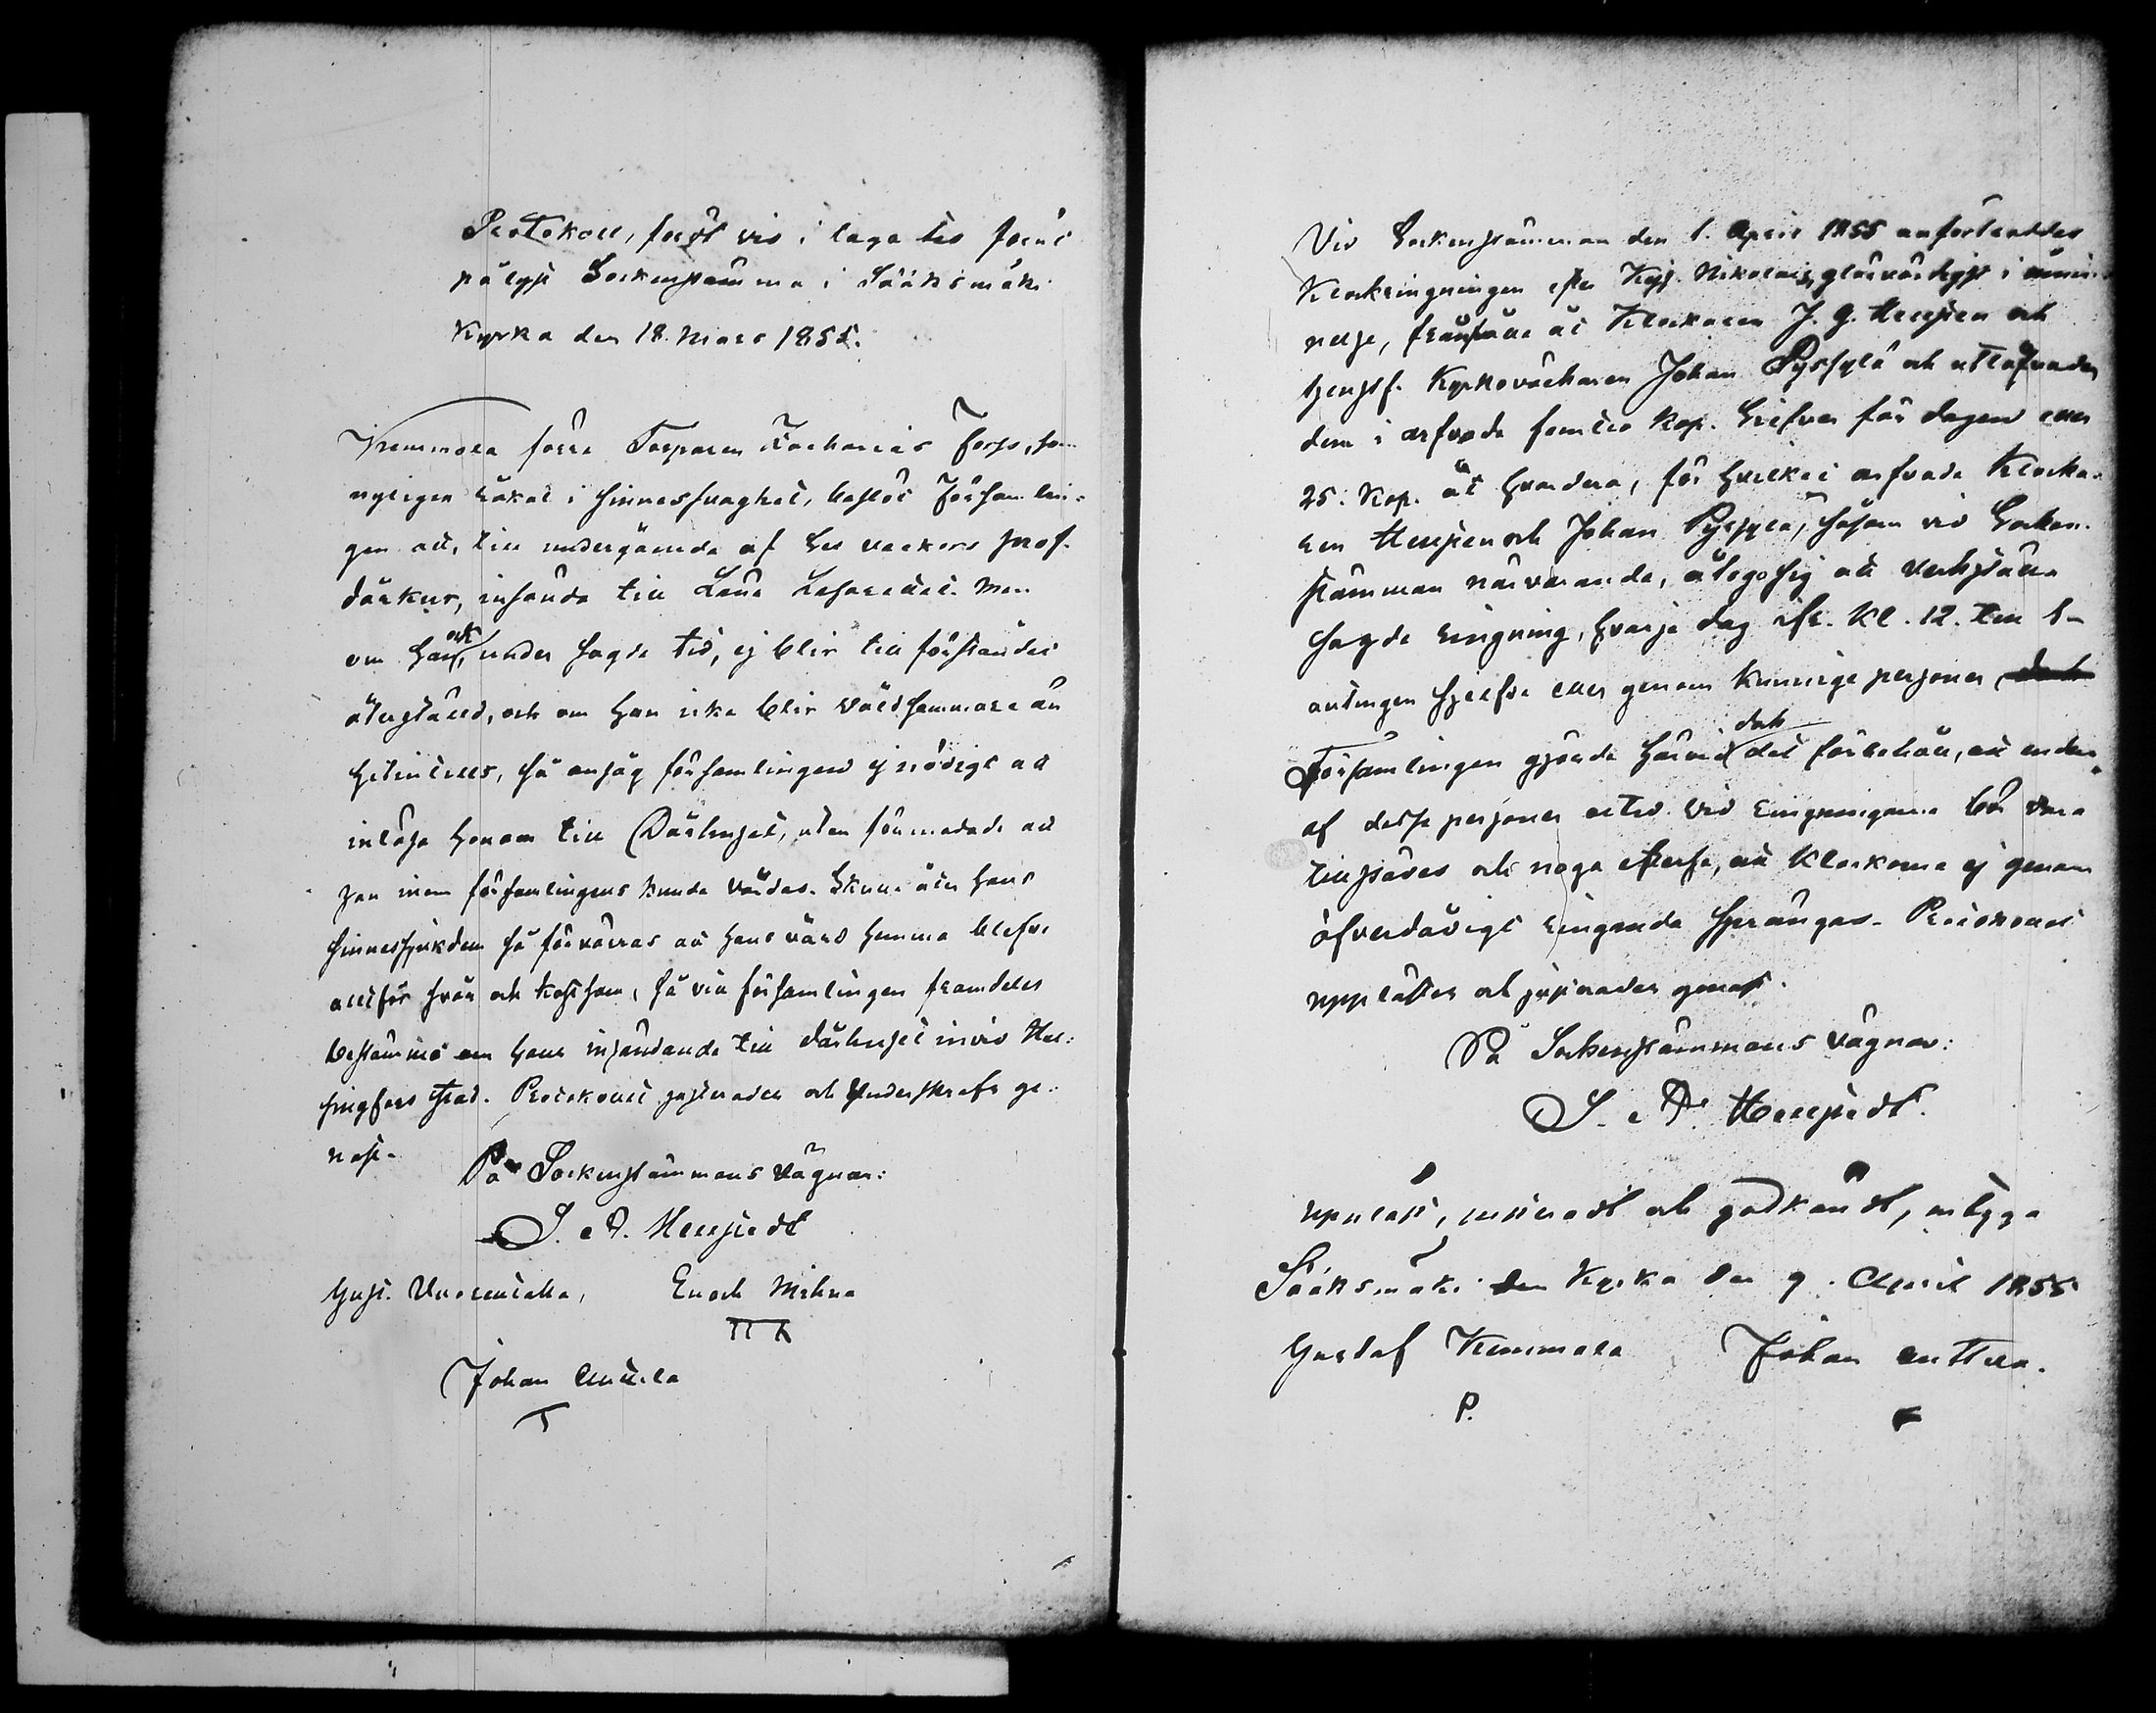 Protokoll, fördt vid i laga tid förut
pålyst Sockenstämma i Sääksmäki
Kyrka den 18 Mars 1855.
Kemmola förra Torparen Zacharias Fors, som
nyligen råkat i sinnessvaghet, beslöt Församlin-
gen att, till undergående af sex veckors prof-
dårkur, insända till Läne Lasarettet. Men
om han, och under sagde tid, ej blir till förståndet
återstäld, och om han icke blir våldsammare än
hitintills, så ansåg församlingen ej nödigt att
inlösa honom till Dårhuset, utan förmodade att
han inom församlingens kunde vårdas. Skulle åter hans
sinnessjukdom så förvärras att hans vård hemma blefve
alltför svår och kostsam, så vill församlingen framdeles
bestämma om hans insändande till dårhuset invid Hel-
singfors stad. Protokollet justerades och underskrefs ge-
nast.
På Sockenstämmans vägnar:
S. A. Hellstedt
Gust. Uuorentalla, Enoch Mikua
Johan Anttila
Vid Sockenstämman den 1. April 1855 anförtroddes
Klockringningen efter Kejs. Nikolai, glorvördigst i åmin-
nelse, framfare åt Klockaren J. G. Hellsten och
tjenstf. Kyrkoväktaren Johan Pyssylä och utlofvades
dem i arfvode femtio kop. Silfver för dagen eller
25. kop. åt hvardera, för hvilket arfvode Klocka-
ren Hellsten och Johan Pyssylä, såsom vid Socken-
stämman närvarande, åtogo sig att verkställa
sagde ringning, hvarje dag ifr. Kl. 12. till 1-
antingen sjelfva eller genom kunnige personer,
Församlingen gjorde härvid dock det förbehåll, att endera
af dessa personer alltid vid ringningarne bör vara
tillstädes och noga efterse, att Klockorna ej genom
öfverdådigt ringande sprängas. Protokollet
upplästes och justerades genast.
På Sockenstämmans vägnar:
S. A. Hellstedt.
Uppläst, justeradt och godkändt, intyga
Sääksmäki Kyrka den 9. April 1855
Gustaf Kemmola Johan Anttila.
P.